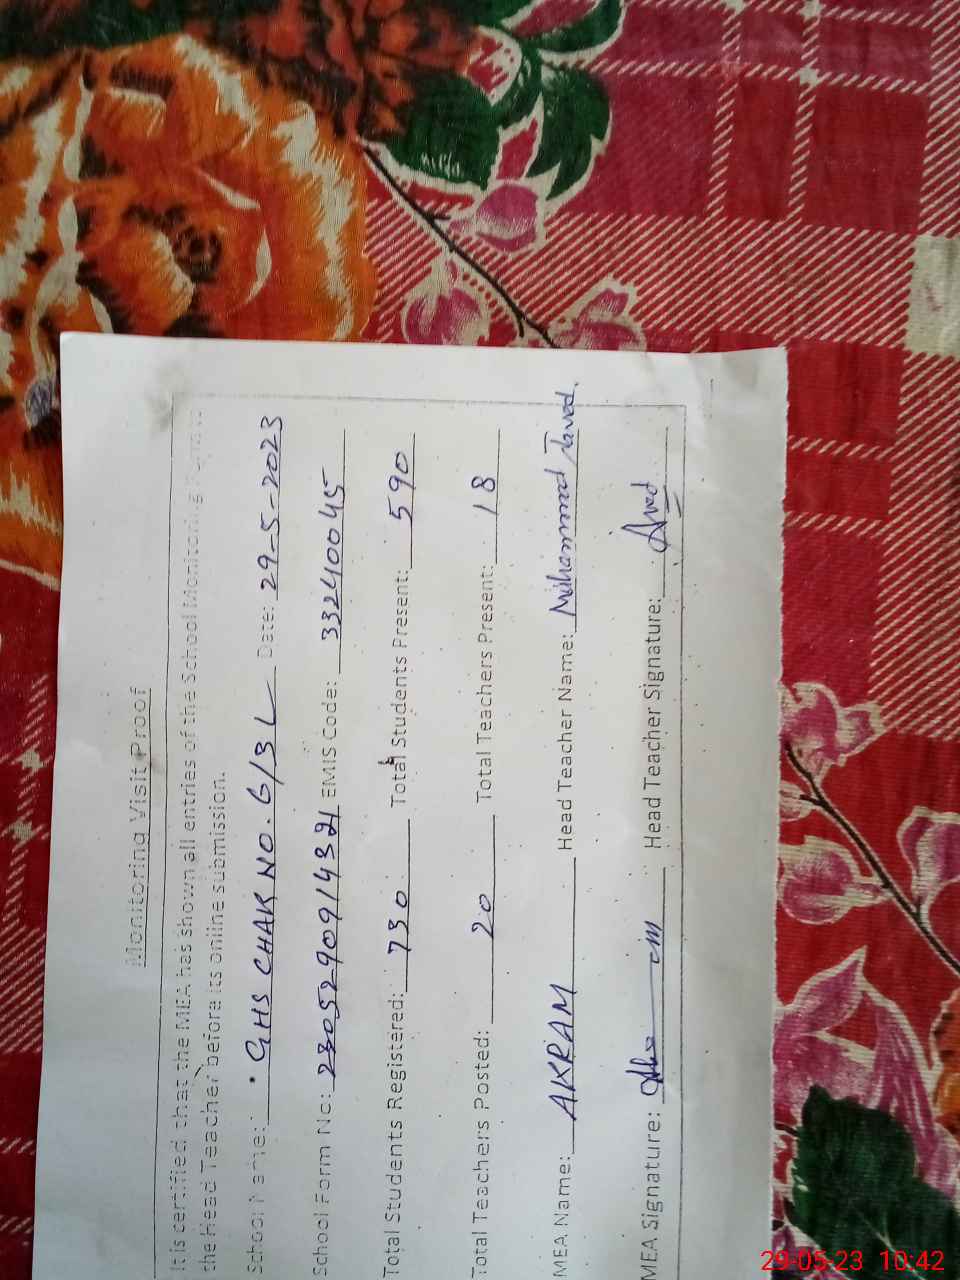 Monitoring Visit Proof
It is certified that the MEA has shown all entries of the School Monitoring
the Head Teacher before its online submission.
School Name: GHS CHAK NO. 6/3 L Date: 29-5-2023
School Form No: 2305290914321 EMIS Code: 33240045
Total Students Registered: 730 Total Students Present: 590
Total Teachers Posted: 20 Total Teachers Present: 18
MEA Name: AKRAM Head Teacher Name: Muhammad Javed.
MEA Signature: Head Teacher Signature:
29-05-23 10:42